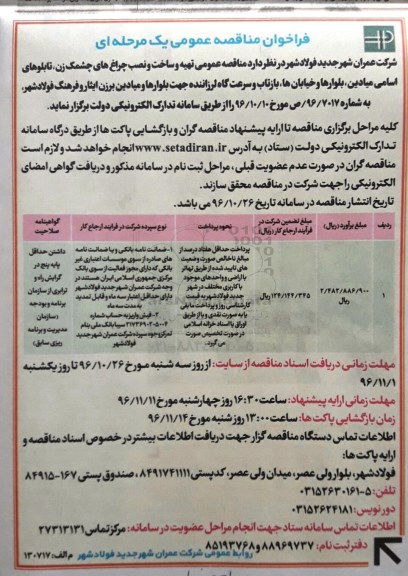 فراخوان مناقصه عمومی یک مرحله ای
شرکت عمران شهر جدید فولادشهر در نظر دارد مناقصه عمومی تهیه و ساخت و نصب چراغ های چشمک زن، تابلوهای
اسامی میادین، بلوارها و خیابان ها، بازتاب و سرعت گاه لرزاننده جهت بلوارها و میادین برزن ایثار و فرهنگ فولادشهر،
به شماره ۹۶/۷۰۱۷/ص مورخ ۹۶/۱۰/۱۰ را از طریق سامانه تدارک الکترونیکی دولت برگزار نماید.
کلیه مراحل برگزاری مناقصه تا ارایه پیشنهاد مناقصه گران و بازگشایی پاکت ها از طریق درگاه سامانه
تدارک الکترونیکی دولت (ستاد) به آدرس www.setadiran.ir انجام خواهد شد و لازم است
مناقصه گران در صورت عدم عضویت قبلی، مراحل ثبت نام در سامانه مذکور و دریافت گواهی امضای
الکترونیکی را جهت شرکت در مناقصه محقق سازند.
تاریخ انتشار مناقصه در سامانه تاریخ ۹۶/۱۰/۲۶ می باشد.
ردیف
مبلغ برآورد (ریال)
مبلغ تضمین شرکت در فرآیند ارجاع کار (ریال)
نحوه پرداخت
نوع سپرده شرکت در فرایند ارجاع کار
گواهینامه صلاحیت
۱
۲/۴۸۲/۸۸۶/۹۰۰
ریال
۱۲۴/۱۴۴/۳۴۵ ریال
پرداخت حداقل هفتاد درصد از
مبلغ ناخالص صورت وضعیت
های تایید شده از طریق تهاتر
با اراضی و واحدهای موجود
با کاربری مختلف در شهر
جدید فولادشهر به قیمت
کارشناسی روز و پرداخت مابقی
به صورت نقدی و یا از طریق
اوراق یا اسناد خزانه اسلامی
در صورت تخصیص صورت
می گیرد.
۱-ضمانت نامه بانکی و یا ضمانت نامه
های صادره از سوی موسسات اعتباری غیر
بانکی که دارای مجوز فعالیت از سوی بانک
مرکزی جمهوری اسلامی ایران هستند در
وجه شرکت عمران شهر جدید فولادشهر که
دارای حداقل اعتبار سه ماه و قابل تمدید
به مدت سه ماه
۲-فیش واریز به حساب شماره
۲۱۷۳۶۹۰۲۰۵۰۰۴ سیبا بانک ملی بنام
تمرکز وجوه سپرده شرکت عمران شهر جدید
فولادشهر
داشتن حداقل
پایه پنج در
گرایش راه و
ترابری از سازمان
برنامه و بودجه
(سازمان
مدیریت و برنامه
ریزی سابق)
مهلت زمانی دریافت اسناد مناقصه از سایت: از روز سه شنبه مورخ ۹۶/۱۰/۲۶ تا روز یکشنبه
۹۶/۱۱/۱
مهلت زمانی ارایه پیشنهاد: ساعت ۱۶:۳۰ روز چهارشنبه مورخ ۹۶/۱۱/۱۱
زمان بازگشایی پاکت ها: ساعت ۱۳:۰۰ روز شنبه مورخ ۹۶/۱۱/۱۴
اطلاعات تماس دستگاه مناقصه گزار جهت دریافت اطلاعات بیشتر در خصوص اسناد مناقصه و
ارایه پاکت ها:
فولادشهر، بلوار ولی عصر، میدان ولی عصر، کدپستی ۸۴۹۱۷۴۱۱۱۱، صندوق پستی ۱۶۷-۸۴۹۱۵
تلفن: ۵-۰۳۱۵۲۶۳۰۱۶۱
دورنویس: ۰۳۱۵۲۶۲۴۱۸۱
اطلاعات تماس سامانه ستاد جهت انجام مراحل عضویت در سامانه: مرکز تماس ۲۷۳۱۳۱۳۱
دفتر ثبت نام: ۸۸۹۶۹۷۳۷ و ۸۵۱۹۳۷۶۸
روابط عمومی شرکت عمران شهر جدید فولادشهر م الف: ۱۳۰۷۱۷